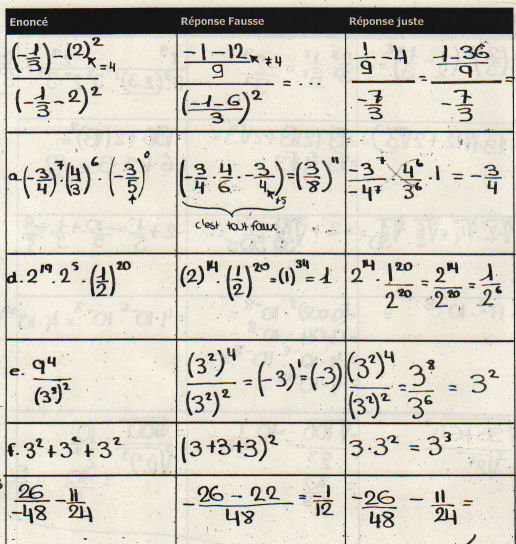 Enoncé | Réponse Fausse | Réponse juste
((-1/3)² - (2)² =4) / (-1/3 - 2)² | ((-1-12)/9 +4) / ((-1-6)/3)² = ... | (1/9 - 4) / (-7/3) = ((1-36)/9) / (-7/3) =
a. (-3/4)⁷ · (4/3)⁶ · (-3/5)⁰ | (-3/4 · 4/6 · -3/4 +5) = (3/8)¹¹ | -3⁷/4⁷ · 4⁶/3⁶ · 1 = -3/4
c'est tout faux
d. 2¹⁹ · 2⁵ · (1/2)²⁰ | (2)¹⁴ · (1/2)²⁰ = (1)³⁴ = 1 | 2¹⁴ · 1²⁰/2²⁰ = 2¹⁴/2²⁰ = 1/2⁶
e. 9⁴/(3³)² | (3²)⁴/(3²)² = (-3)¹ = (-3) | (3²)⁴/(3²)² = 3⁸/3⁶ = 3²
f. 3² + 3² + 3² | (3+3+3)² | 3 · 3² = 3³
26/-48 - 11/24 | -(26 - 22)/48 = -1/12 | -26/48 - 11/24 =